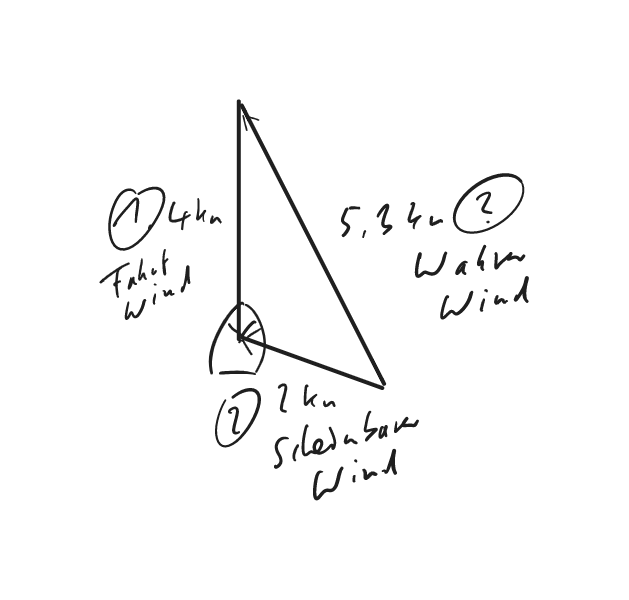 1. 4 kn
Fahrt
Wind
5,3 kn ?
Wahrer
Wind
2 2 kn
Scheinbarer
Wind